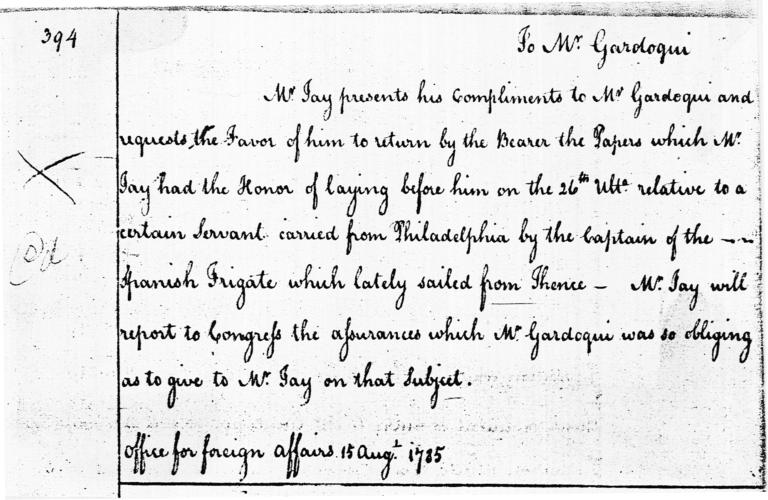 394
To Mr. Gardoqui
Mr. Jay presents his Compliments to Mr. Gardoqui and
requests the Favor of him to return by the Bearer the Papers which Mr.
Jay had the Honor of laying before him on the 26th Ulto. relative to a
certain Servant carried from Philadelphia by the Captain of the --
Spanish Frigate which lately sailed from Thence – Mr. Jay will
report to Congress the assurances which Mr. Gardoqui was so obliging
as to give to Mr. Jay on that Subject.
Office for foreign Affairs 15 Augt. 1785